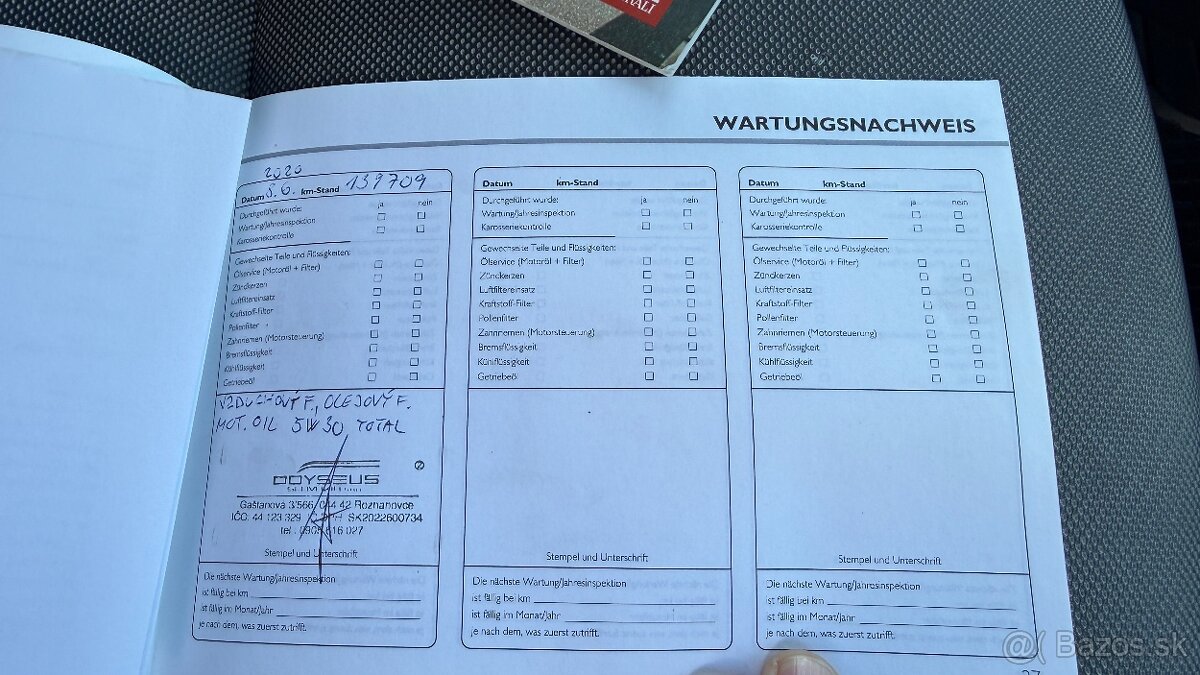 WARTUNGSNACHWEIS
2020
Datum 8.6. km-Stand 139709
Durchgeführt wurde: ja nein
Wartung/Jahresinspektion
Karosseriekontrolle
Gewechselte Teile und Flüssigkeiten:
Ölservice (Motoröl + Filter)
Zündkerzen
Luftfiltereinsatz
Kraftstoff-Filter
Pollenfilter
Zahnriemen (Motorsteuerung)
Bremsflüssigkeit
Kühlflüssigkeit
Getriebeöl
VZDUCHOVÝ F., OLEJOVÝ F.
MOT. OIL 5W30 TOTAL
ODYSEUS
Gaštanová 3566, 044 42 Rozhanovce
IČO: 44 123 329 SK2022600734
tel.: 0905 616 027
Stempel und Unterschrift
Die nächste Wartung/Jahresinspektion
ist fällig bei km
ist fällig im Monat/Jahr
je nach dem, was zuerst zutrifft.
Datum km-Stand
Durchgeführt wurde: ja nein
Wartung/Jahresinspektion
Karosseriekontrolle
Gewechselte Teile und Flüssigkeiten:
Ölservice (Motoröl + Filter)
Zündkerzen
Luftfiltereinsatz
Kraftstoff-Filter
Pollenfilter
Zahnriemen (Motorsteuerung)
Bremsflüssigkeit
Kühlflüssigkeit
Getriebeöl
Stempel und Unterschrift
Die nächste Wartung/Jahresinspektion
ist fällig bei km
ist fällig im Monat/Jahr
je nach dem, was zuerst zutrifft.
Datum km-Stand
Durchgeführt wurde: ja nein
Wartung/Jahresinspektion
Karosseriekontrolle
Gewechselte Teile und Flüssigkeiten:
Ölservice (Motoröl + Filter)
Zündkerzen
Luftfiltereinsatz
Kraftstoff-Filter
Pollenfilter
Zahnriemen (Motorsteuerung)
Bremsflüssigkeit
Kühlflüssigkeit
Getriebeöl
Stempel und Unterschrift
Die nächste Wartung/Jahresinspektion
ist fällig bei km
ist fällig im Monat/Jahr
je nach dem, was zuerst zutrifft.
Bazos.sk